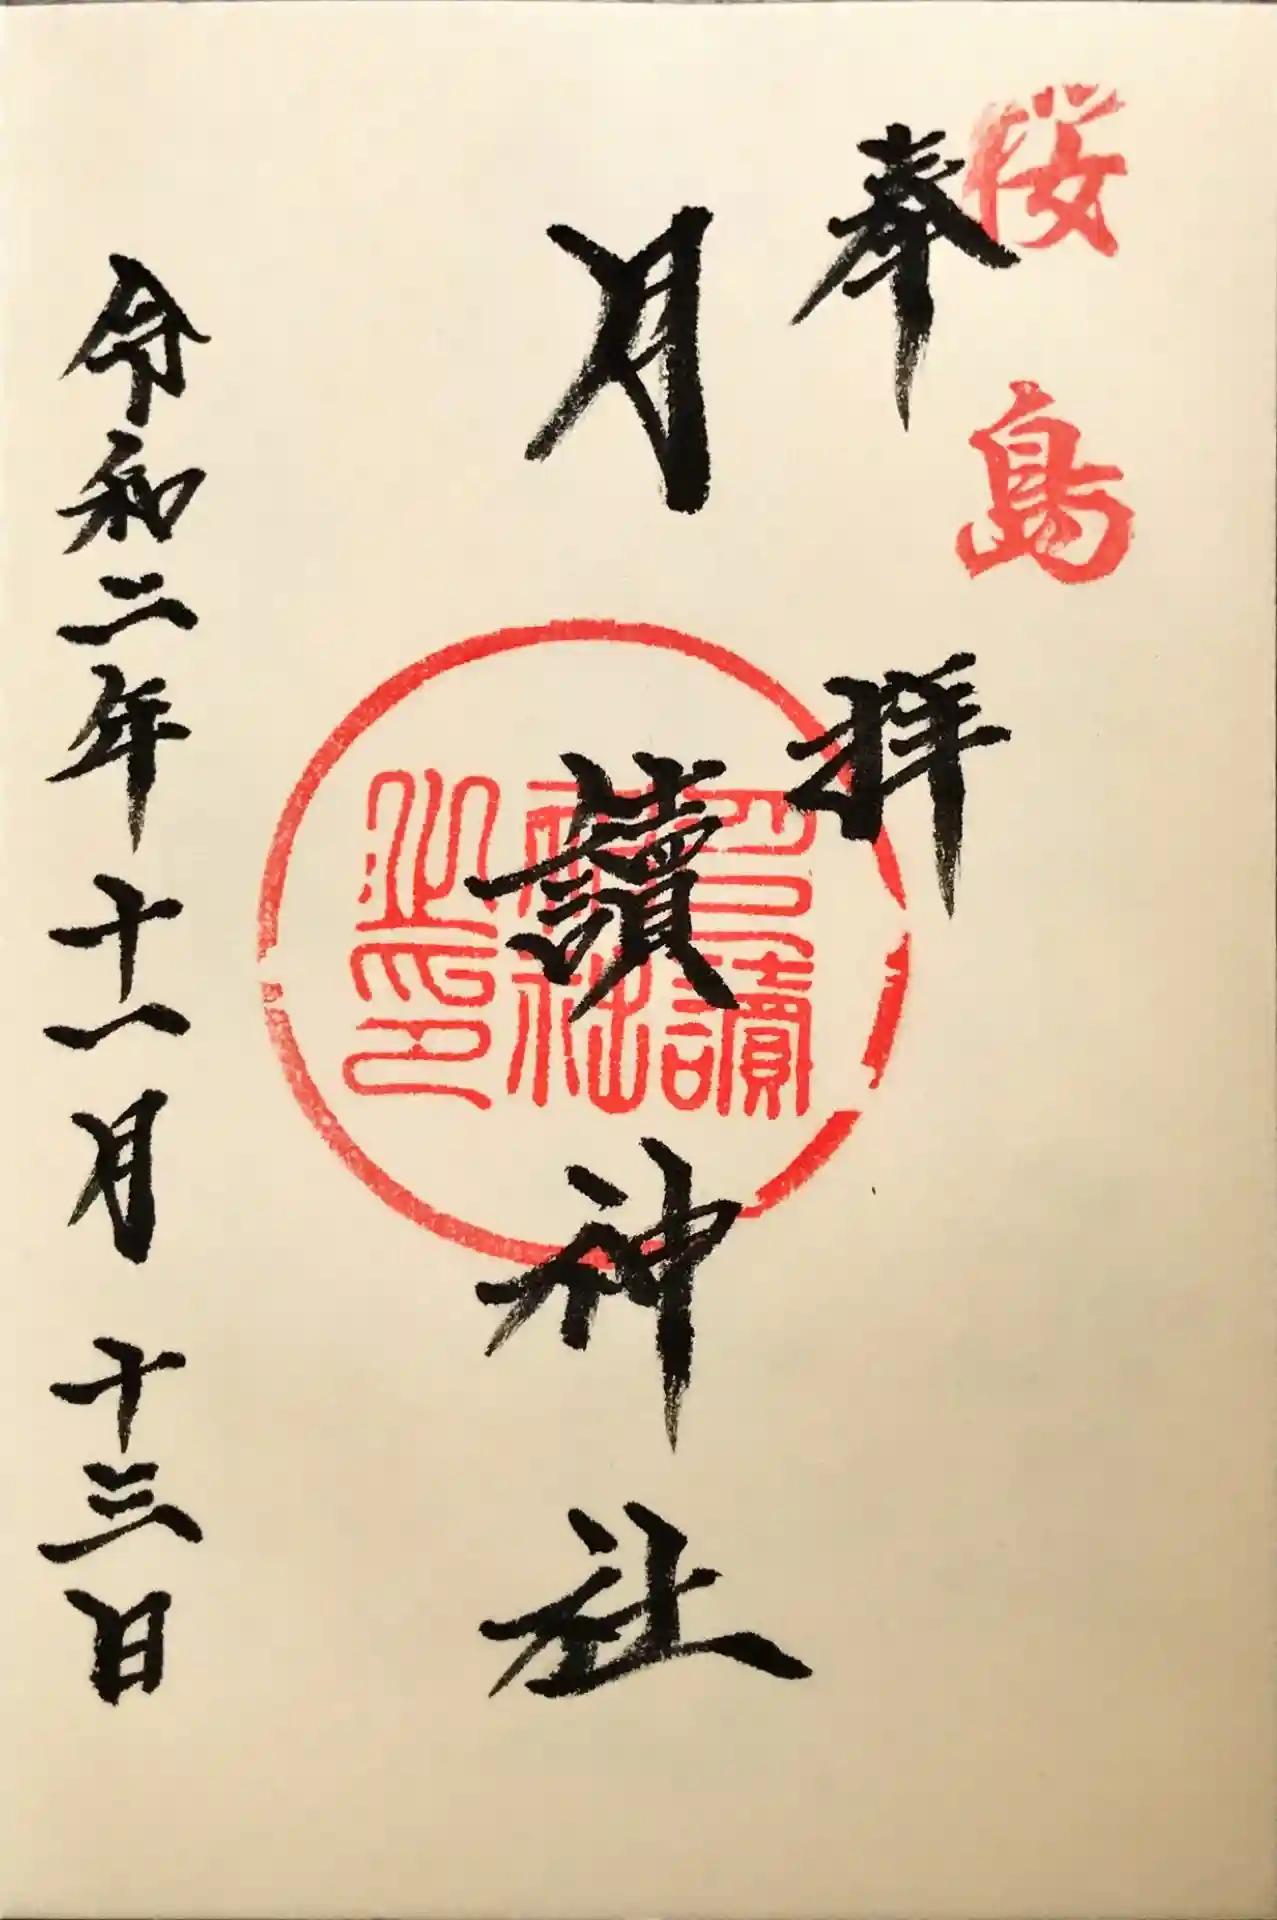 桜島
奉拝
月讀神社
月讀
神社
之印
令和二年十一月十三日